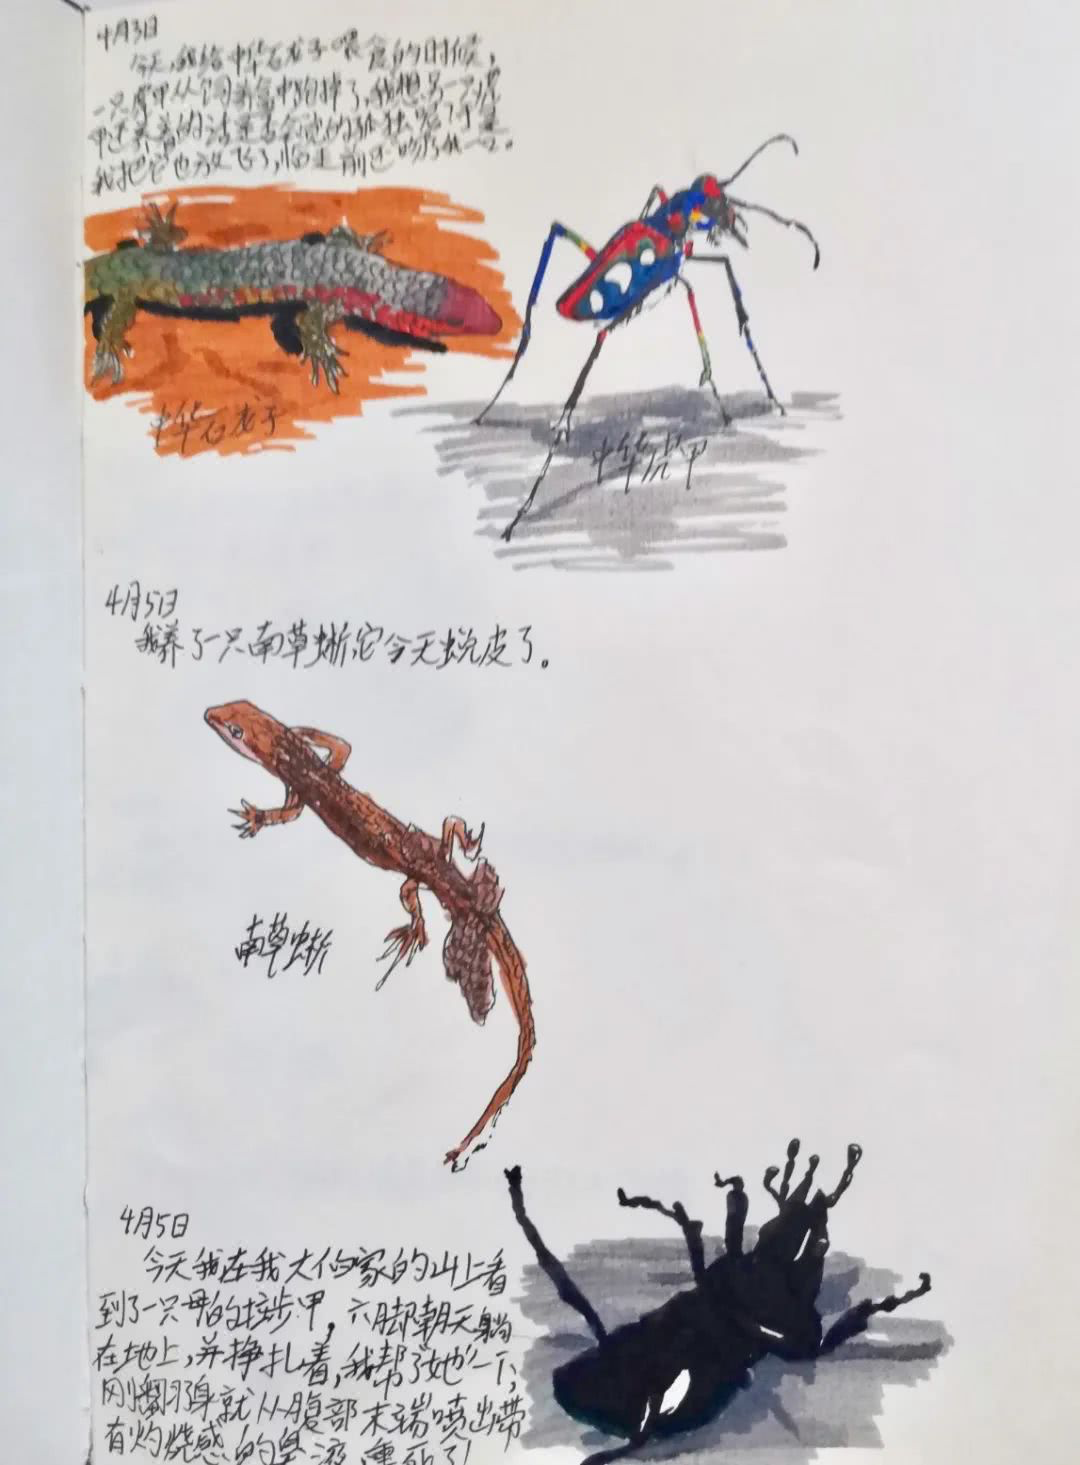 4月3日
今天,我给中华石龙子喂食的时候,
一只虎甲从饲养盒中跑掉了,我想另一只虎
甲还养着的话是否会
我把它也放飞了,临走前还吻了我一口。
中华石龙子
中华虎甲
4月5日
我养了一只南草蜥它今天蜕皮了。
南草蜥
4月5日
今天我在我大伯家的山上看
到了一只母的拉步甲,六脚朝天躺
在地上,并挣扎着,我帮了她一下,
刚翻身就从腹部末端喷出带
有灼烧感的臭液,熏死了!